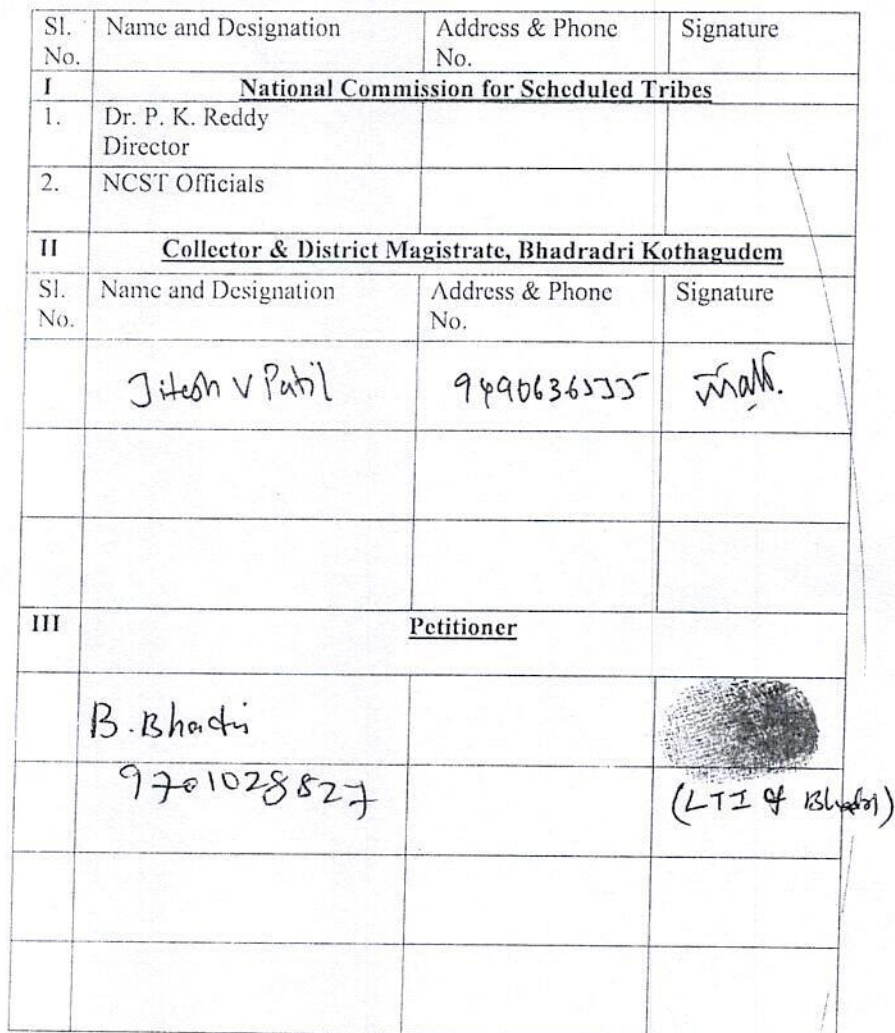 Sl. Name and Designation Address & Phone Signature
No. No.
I National Commission for Scheduled Tribes
1. Dr. P. K. Reddy
Director
2. NCST Officials
II Collector & District Magistrate, Bhadradri Kothagudem
Sl. Name and Designation Address & Phone Signature
No. No.
Jitesh V Patil 9490636555
III Petitioner
B. Bhadri
9701028827
(LTI of Bhadri)